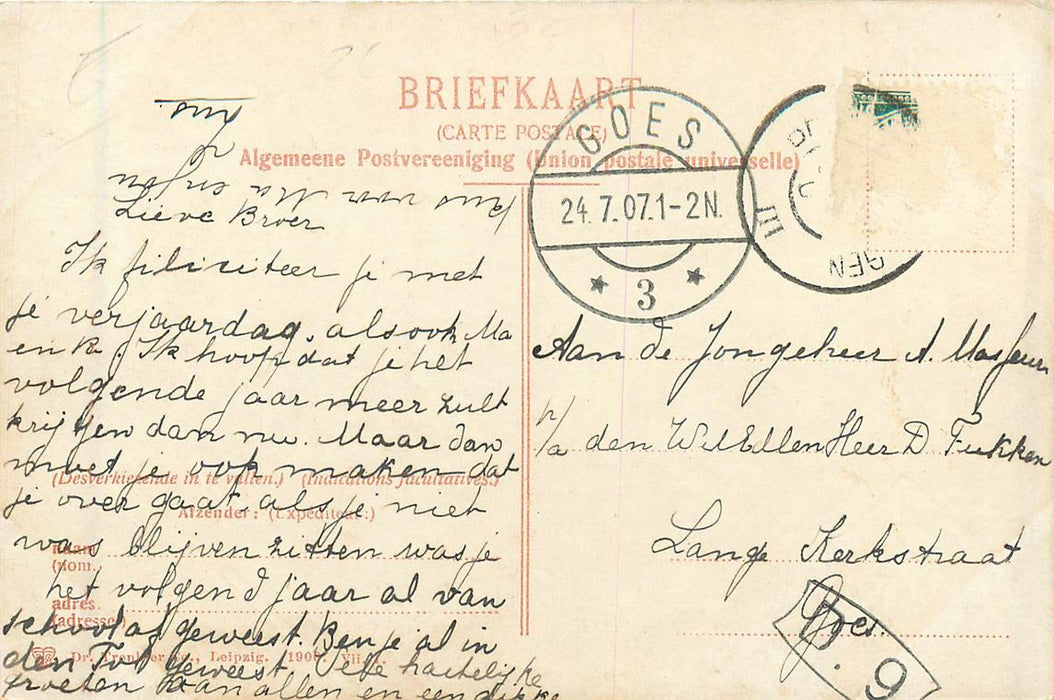 BRIEFKAART
(CARTE POSTALE)
Algemeene Postvereeniging (Union postale universelle)
GOES
24.7.07.1-2N.
3
III
GEN
kus voor Ma en jou
Lieve Broer
Ik filiciteer je met
je verjaardag, alsook Ma
en K. Ik hoop dat je het
volgende jaar meer zult
krijgen dan nu. Maar dan
moet je ook maken dat
je over gaat, als je niet
was blijven zitten was je
het volgend jaar al van
school af geweest. Ben je al in
den Tol geweest. Vele hartelijke
groeten van allen en een dikke
(Desverkiezende in te vullen.) (Indications facultatives.)
Afzender: (Expéditeur:)
naam
(nom.)
adres.
(adresse)
Dr. Trenkler Co., Leipzig. 1905. VII.
Aan de Jongeheer A.
p/a den WelEdlen Heer D. Fukken
Lange Kerkstraat
Goes.
9